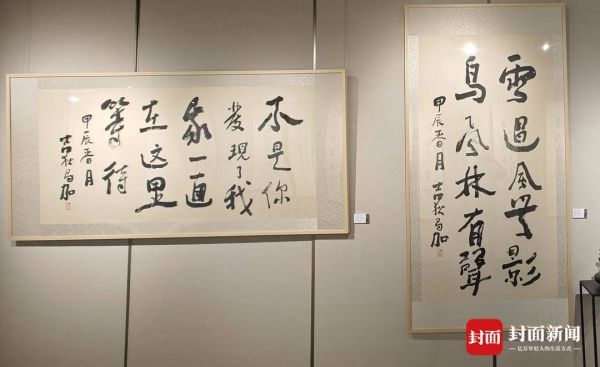 不是你
發現了我
我一直
在这里
等待
甲辰春月
吉狄馬加
雪過風無影
鳥飛林有聲
甲辰春月 吉狄馬加
封面 封面新闻
亿万年轻人的生活方式